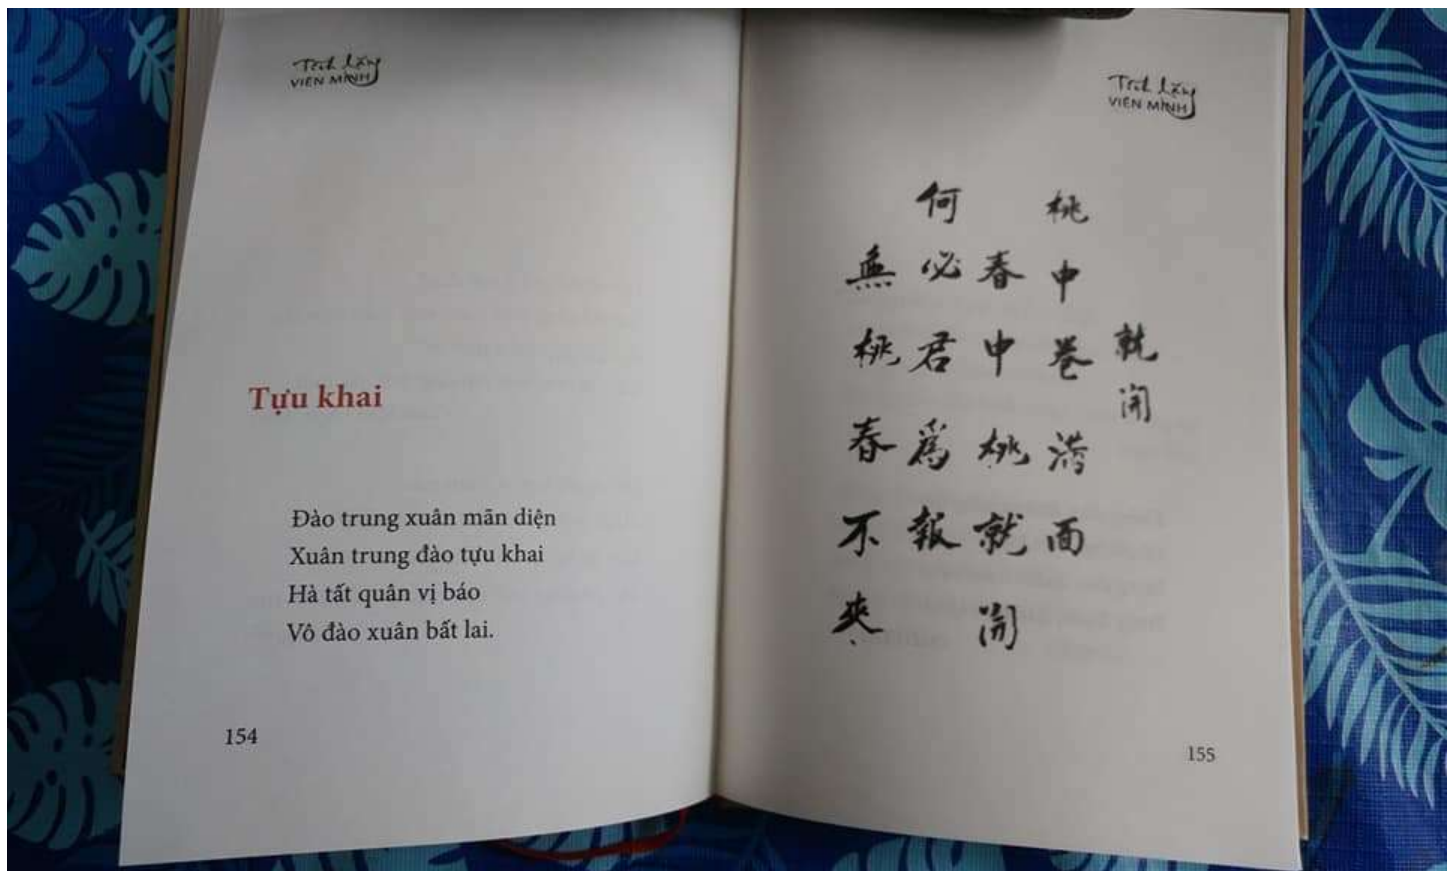 Tĩnh lặng
VIÊN MINH
Tựu khai
Đào trung xuân mãn diện
Xuân trung đào tựu khai
Hà tất quân vị báo
Vô đào xuân bất lai.
154
Tĩnh lặng
VIÊN MINH
就開
桃中春滿面
春中桃就開
何必君爲報
無桃春不來
155